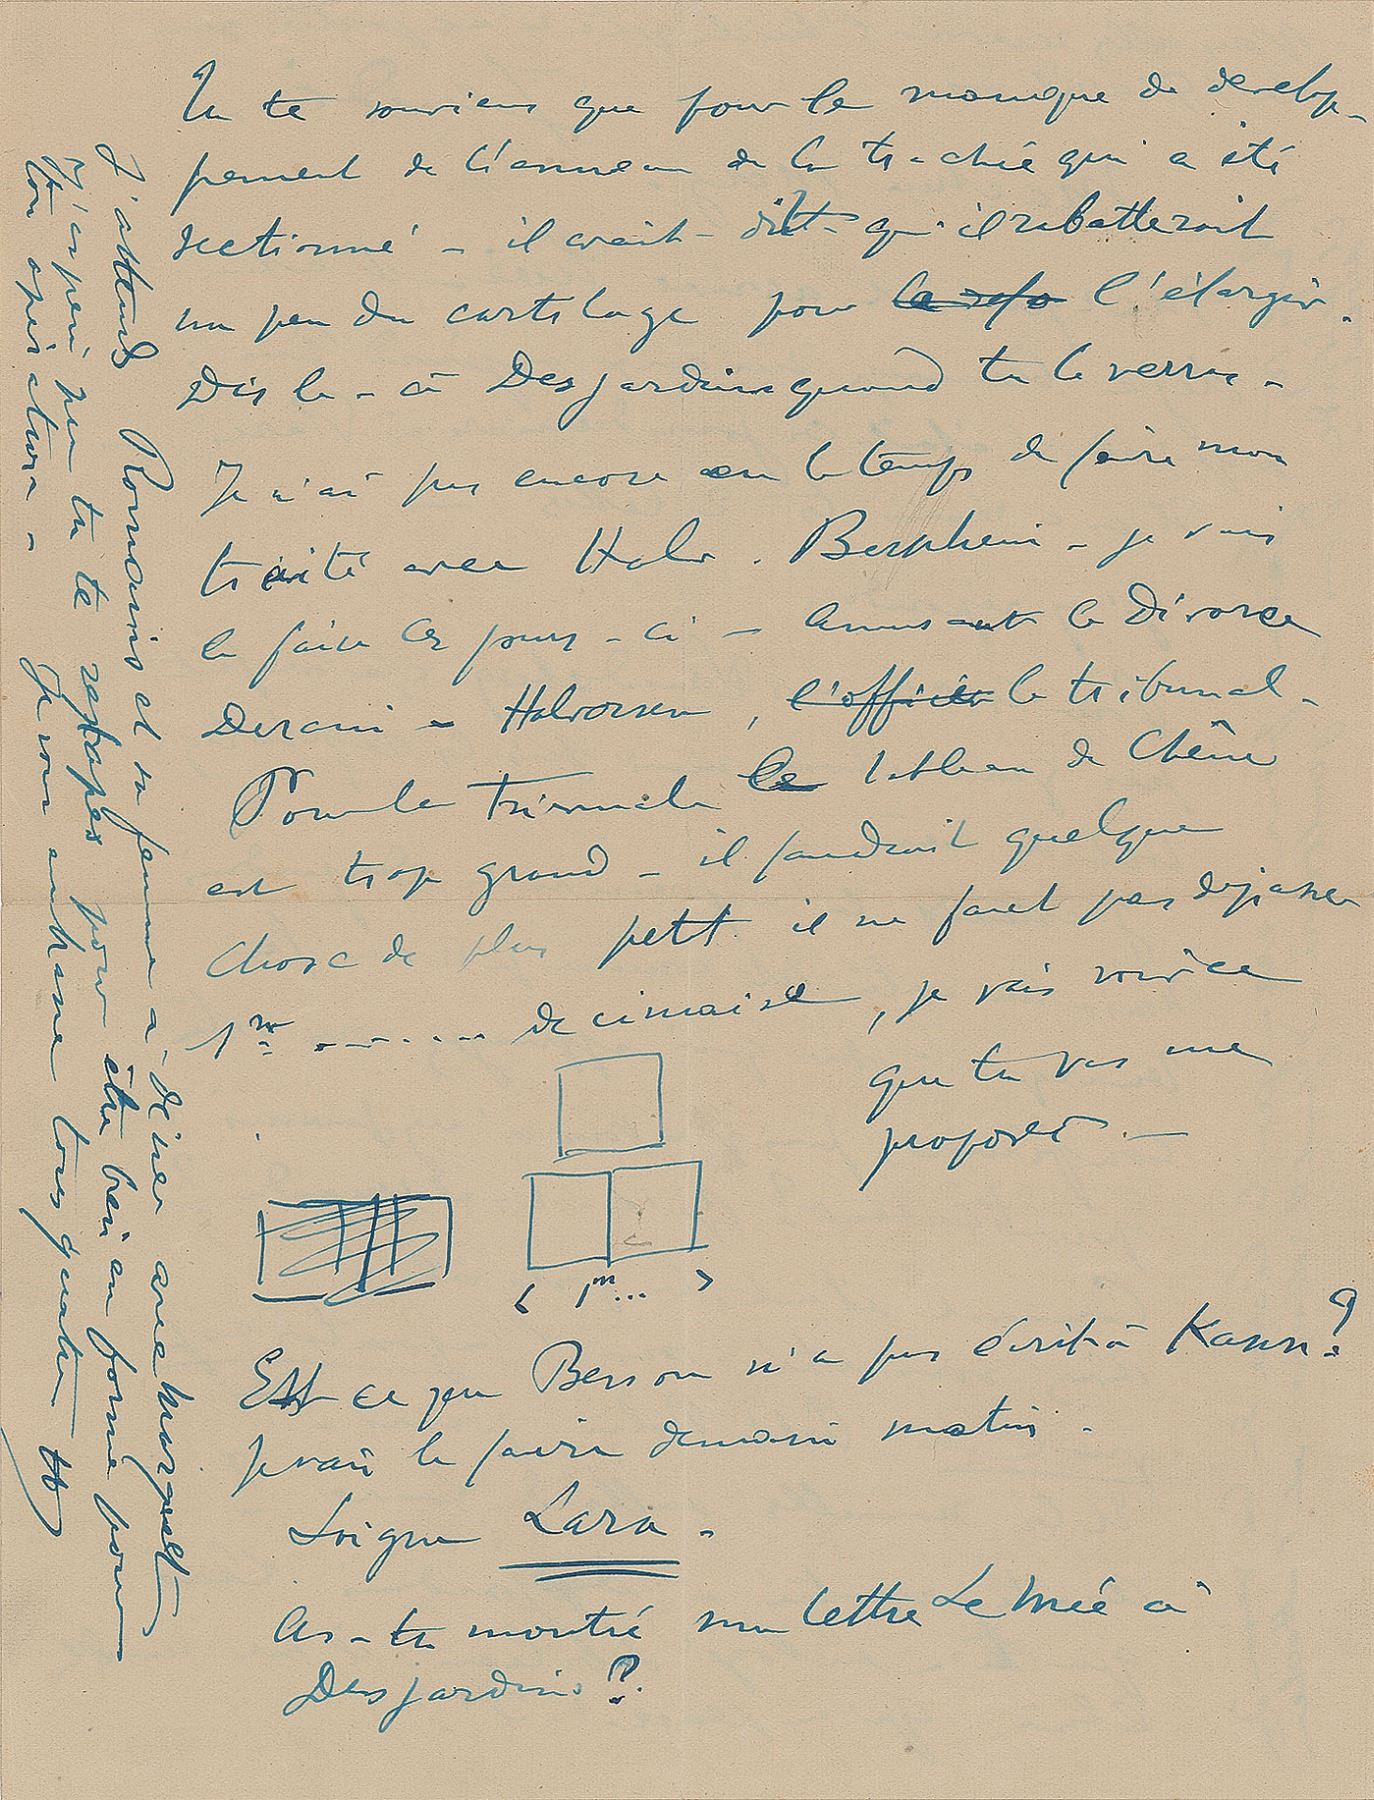 Tu te souviens que pour le manque de develop-
pement de l'anneau de la trachée qui a été
sectionné – il avait – dit – qu'il rabatterait
un peu du cartilage pour l'élargir.
Dis le – à Desjardins quand tu le verras –
Je n'ai pas encore eu le temps de faire mon
traité avec Halv. Bernheim – je vais
le faire ces jours-ci – Amusant le Divorce
Derain – Halvorsen, l'officier le tribunal –
Pour la triennale le tableau de Chêne
est trop grand – il faudrait quelque
chose de plus petit. il ne faut pas dépasser
1m ....... de cimaise, je vais voir ce
que tu vas me
proposer. —
1m...
Est ce que Besson n'a pas écrit à Kann?
je vais le faire demain matin.
Soigne Lara –
As-tu montré ma lettre Le Mée à
Desjardins?
J'attends Romains et sa femme à dîner avec Marquet
J'espère que tu te retapes pour être bien en forme pour
ton opération – Je vous embrasse tous quatre H